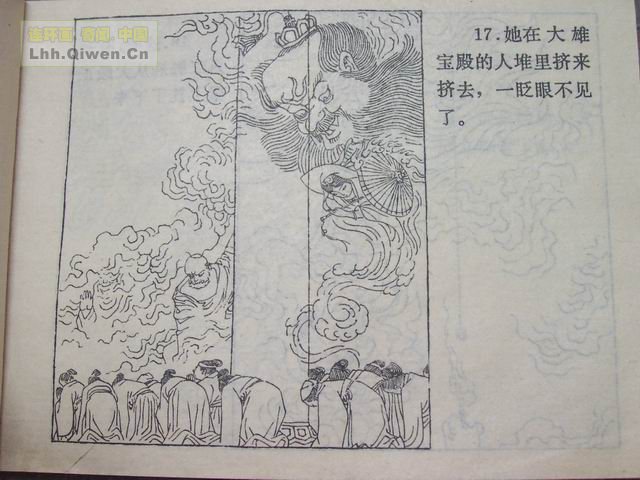 连环画·奇闻·中国
Lhh.Qiwen.Cn
17.她在大雄
宝殿的人堆里挤来
挤去，一眨眼不见
了。